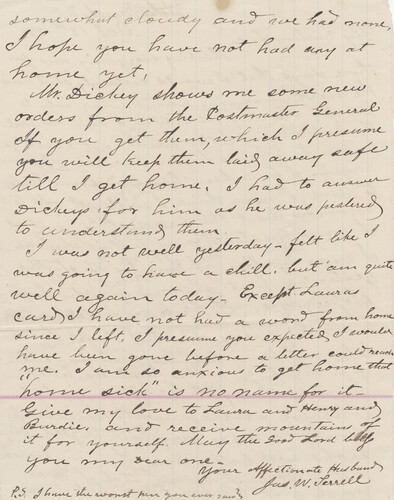 somewhat cloudy and we had none,
I hope you have not had any at
home yet.
Mr. Dickey shows me some new
orders from the Postmaster General
If you get them, which I presume
you will keep them laid away safe
till I get home. I had to answer
Dickeys for him as he was
to understand them
I was not well yesterday - felt like I
was going to have a chill. but am quite
well again today - Except Lauras
card I have not had a word from home
since I left. I presume you expected I would
have been gone before a letter could reach
me. I am so anxious to get home that
"home sick" is no name for it -
Give my love to Laura and Henry and
Burdie. and receive mountains of
it for yourself. May the Good Lord bless
you my Dear one -
Your Affectionate Husband
Jas. W. Terrell
P.S. I have the worst pen you ever saw